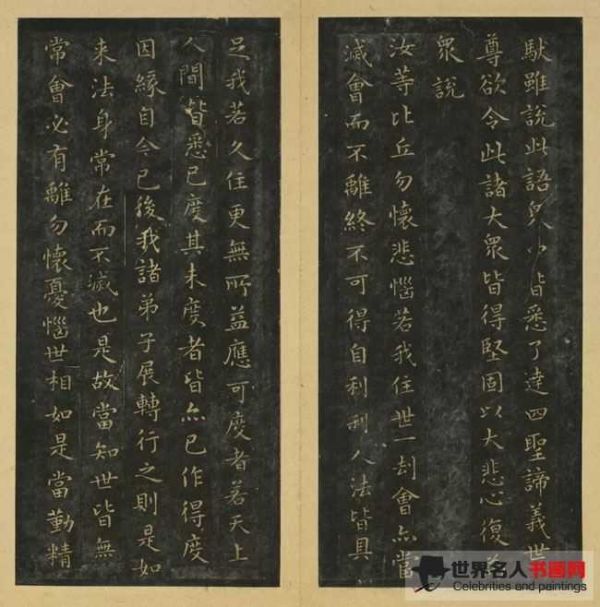 馱雖說此語眾皆悉了達四聖諦義世
尊欲令此諸大眾皆得堅固以大悲心復為
眾說
汝等比丘勿懷悲惱若我住世一劫會亦當
滅會而不離終不可得自利利人法皆具
足我若久住更無所益應可度者若天上
人間皆悉已度其未度者皆亦已作得度
因緣自今已後我諸弟子展轉行之則是如
来法身常在而不滅也是故當知世皆無
常會必有離勿懷憂惱世相如是當勤精
世界名人书画网
Celebrities and paintings